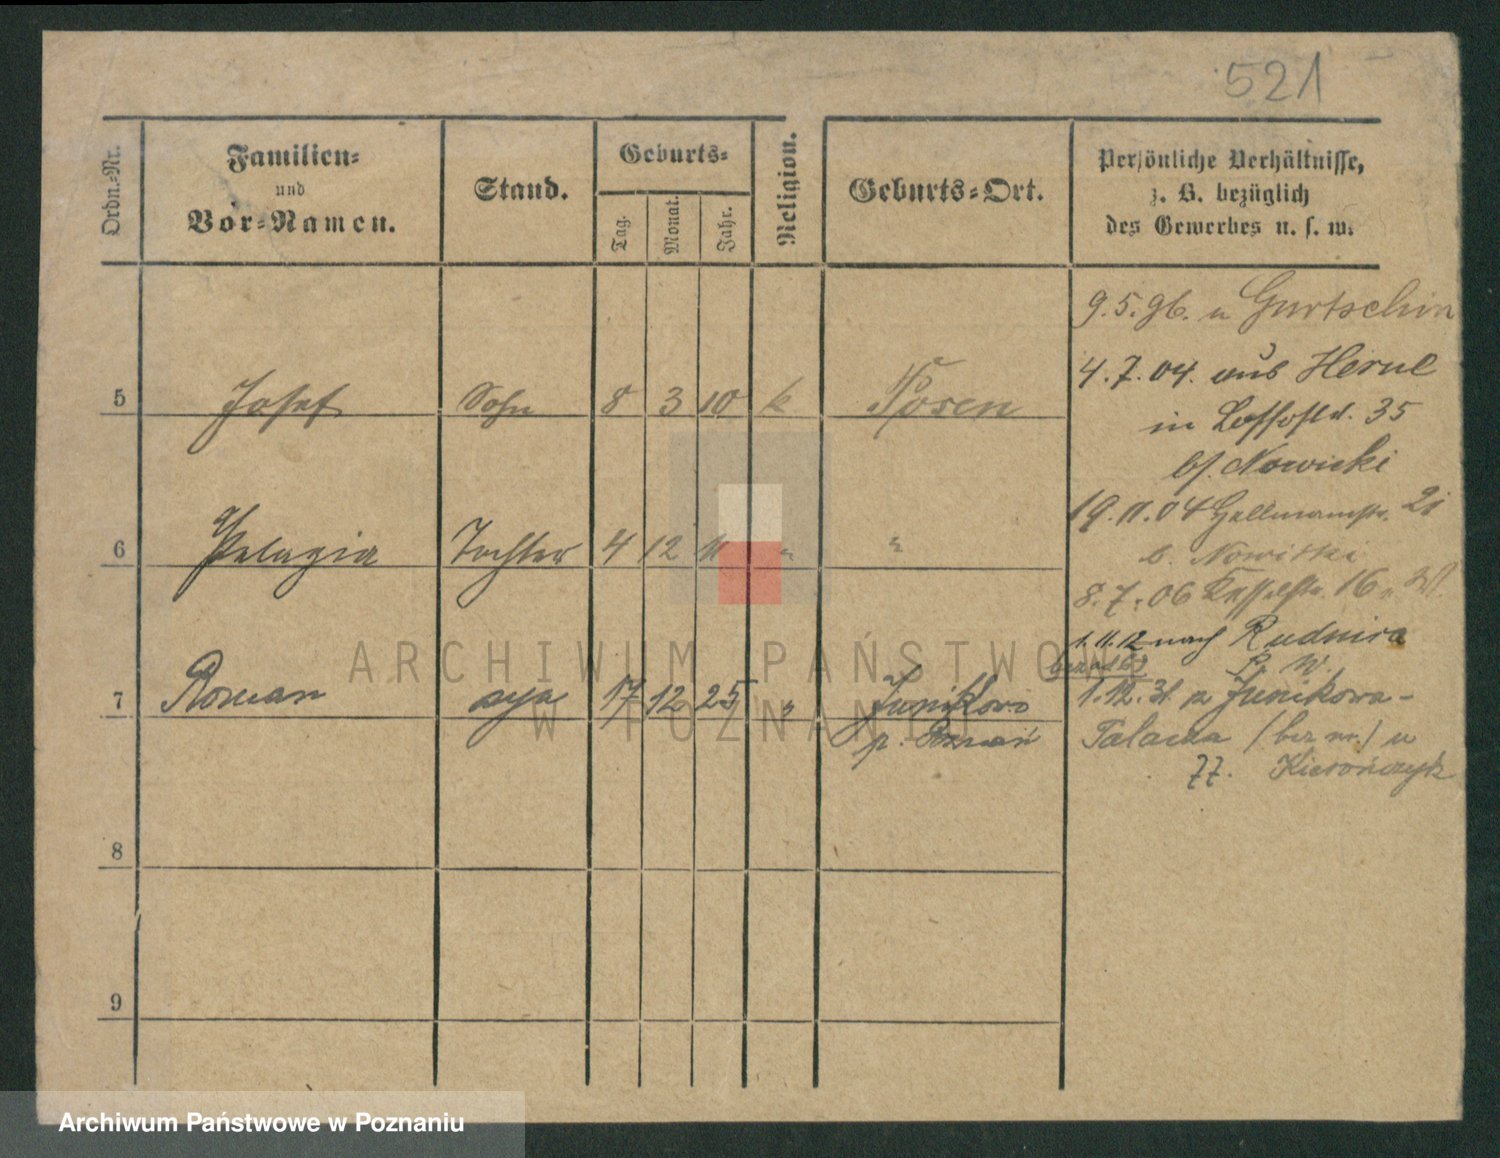 521
Ordn.-Nr.
Familien-
und
Vor-Namen.
Stand.
Geburts-
Tag.
Monat.
Jahr.
Religion.
Geburts-Ort.
Persönliche Verhältnisse,
z. B. bezüglich
des Gewerbes u. s. w.
9.5.96. n Gurtschin
5 Josef Sohn 8 3 10 k Posen
4.7.04. aus Herne
in 35
bs. Nowicki
6 Pelagia Tochter 4 12 11 " "
19.11.04 21
b. Nowitski
8.7.06 16
1.11.12 nach Rudnica
P. W.
7 Roman syn 17 12 25 " Junikowo
p. Poznań
1.12.31 p Junikowa-
(bez nr.) u
77.
8
9
ARCHIWUM PAŃSTWOWE
W POZNANIU
Archiwum Państwowe w Poznaniu